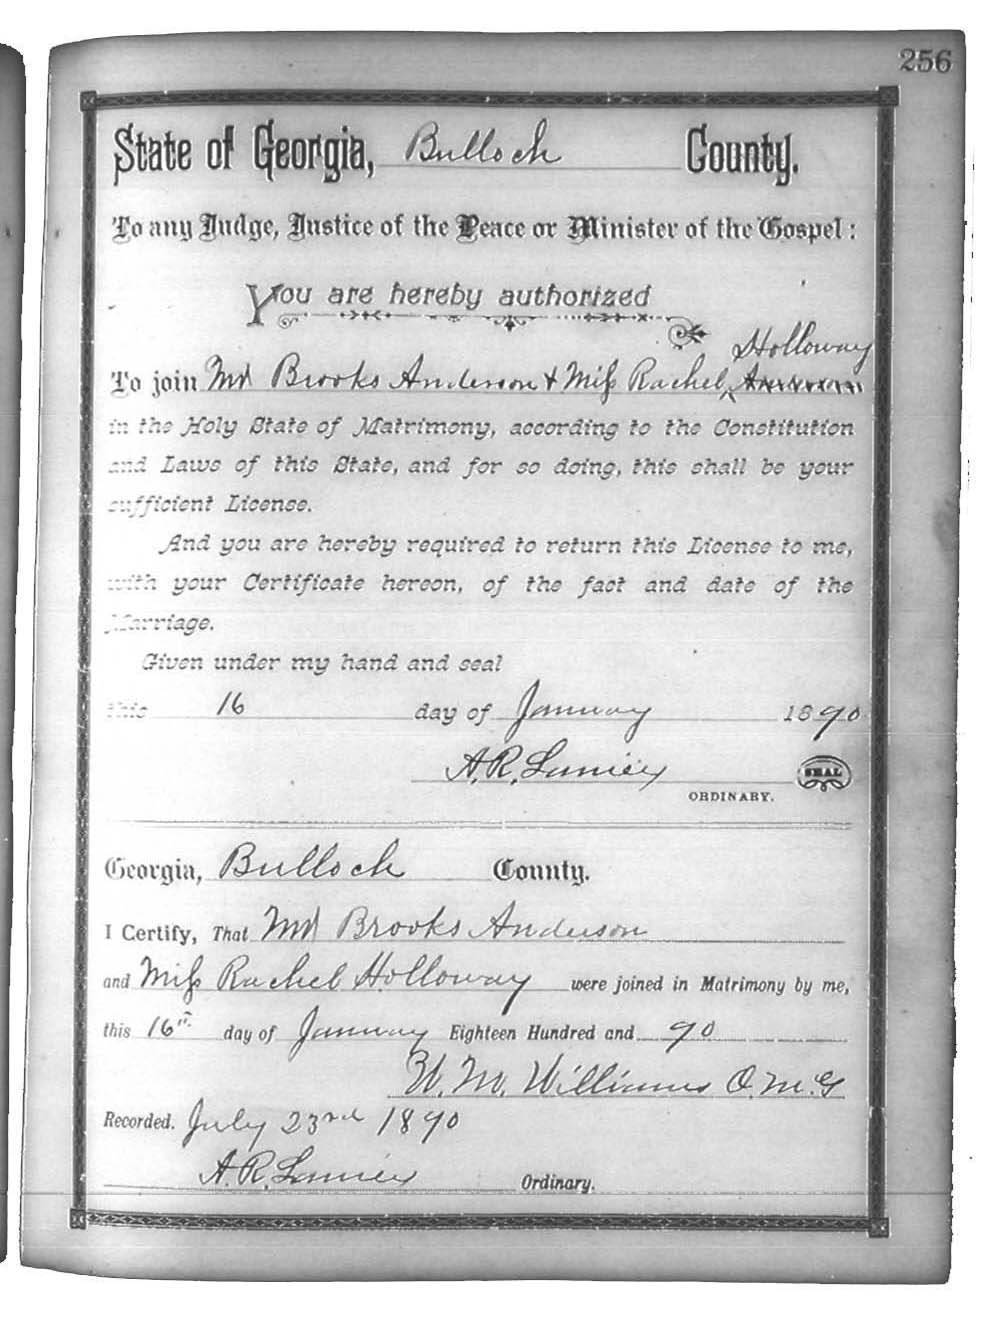 256
State of Georgia, Bulloch County.
To any Judge, Justice of the Peace or Minister of the Gospel:
You are hereby authorized
Holloway
To join Mr Brooks Anderson + Miss Rachel
in the Holy State of Matrimony, according to the Constitution
and Laws of this State, and for so doing, this shall be your
sufficient License.
And you are hereby required to return this License to me,
with your Certificate hereon, of the fact and date of the
Marriage.
Given under my hand and seal
this 16 day of January 1890
A. R. Lanier SEAL
ORDINARY.
Georgia, Bulloch County.
I Certify, That Mr Brooks Anderson
and Miss Rachel Holloway were joined in Matrimony by me,
this 16th day of January Eighteen Hundred and 90
W. M. Williams O. M. G
Recorded. July 23rd 1890
A. R. Lanier Ordinary.